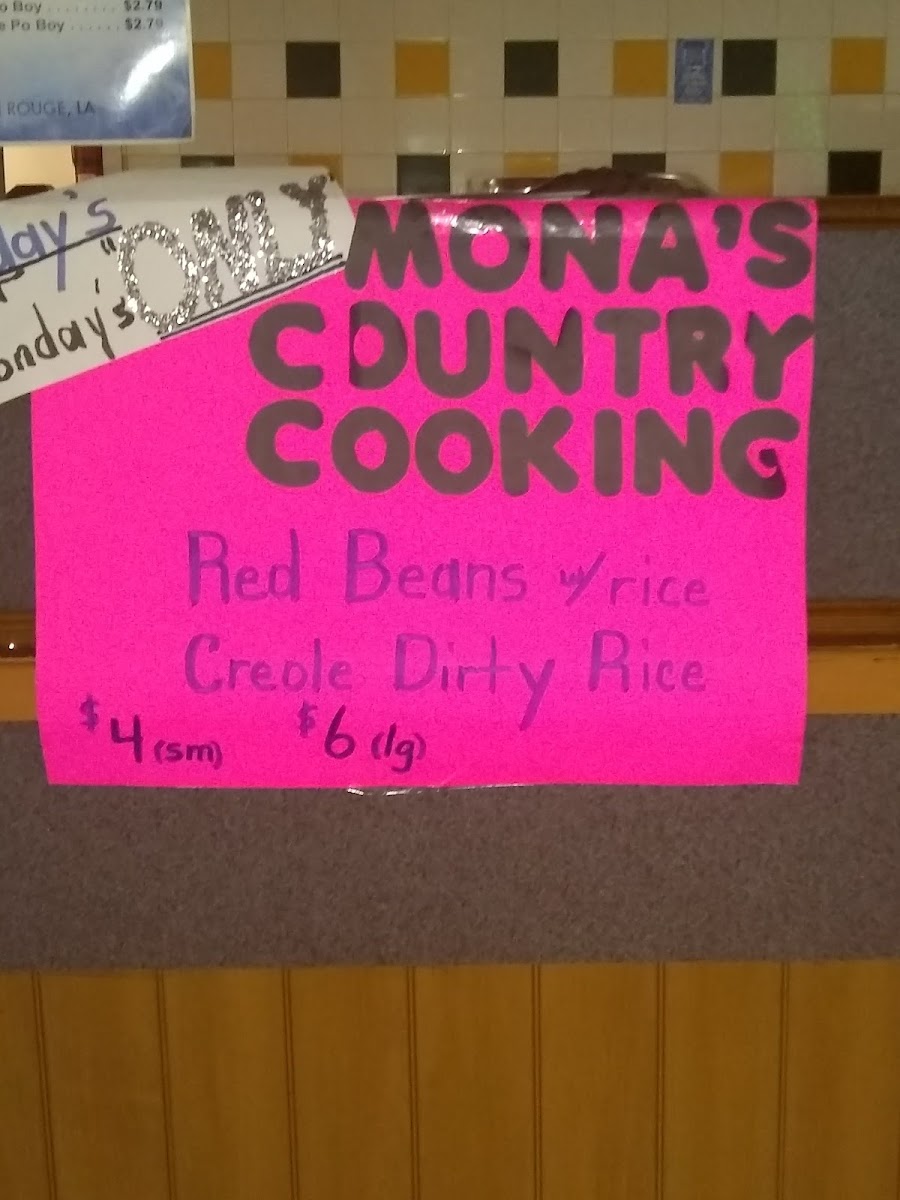 o Boy ........ $2.79
e Po Boy ...... $2.79
ROUGE, LA
day's
onday's "ONLY
MONA'S
COUNTRY
COOKING
Red Beans w/ rice
Creole Dirty Rice
$4 (sm) $6 (lg)